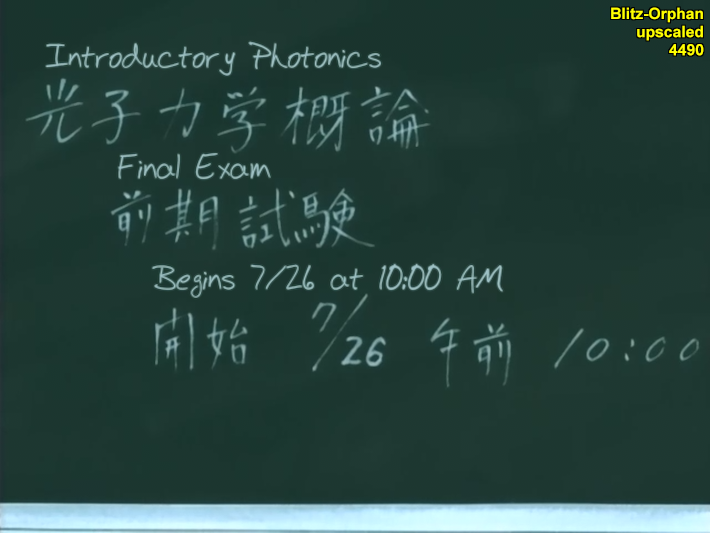 Blitz-Orphan
upscaled
4490
Introductory Photonics
光子力学概論
Final Exam
前期試験
Begins 7/26 at 10:00 AM
開始 7/26 午前 10:00